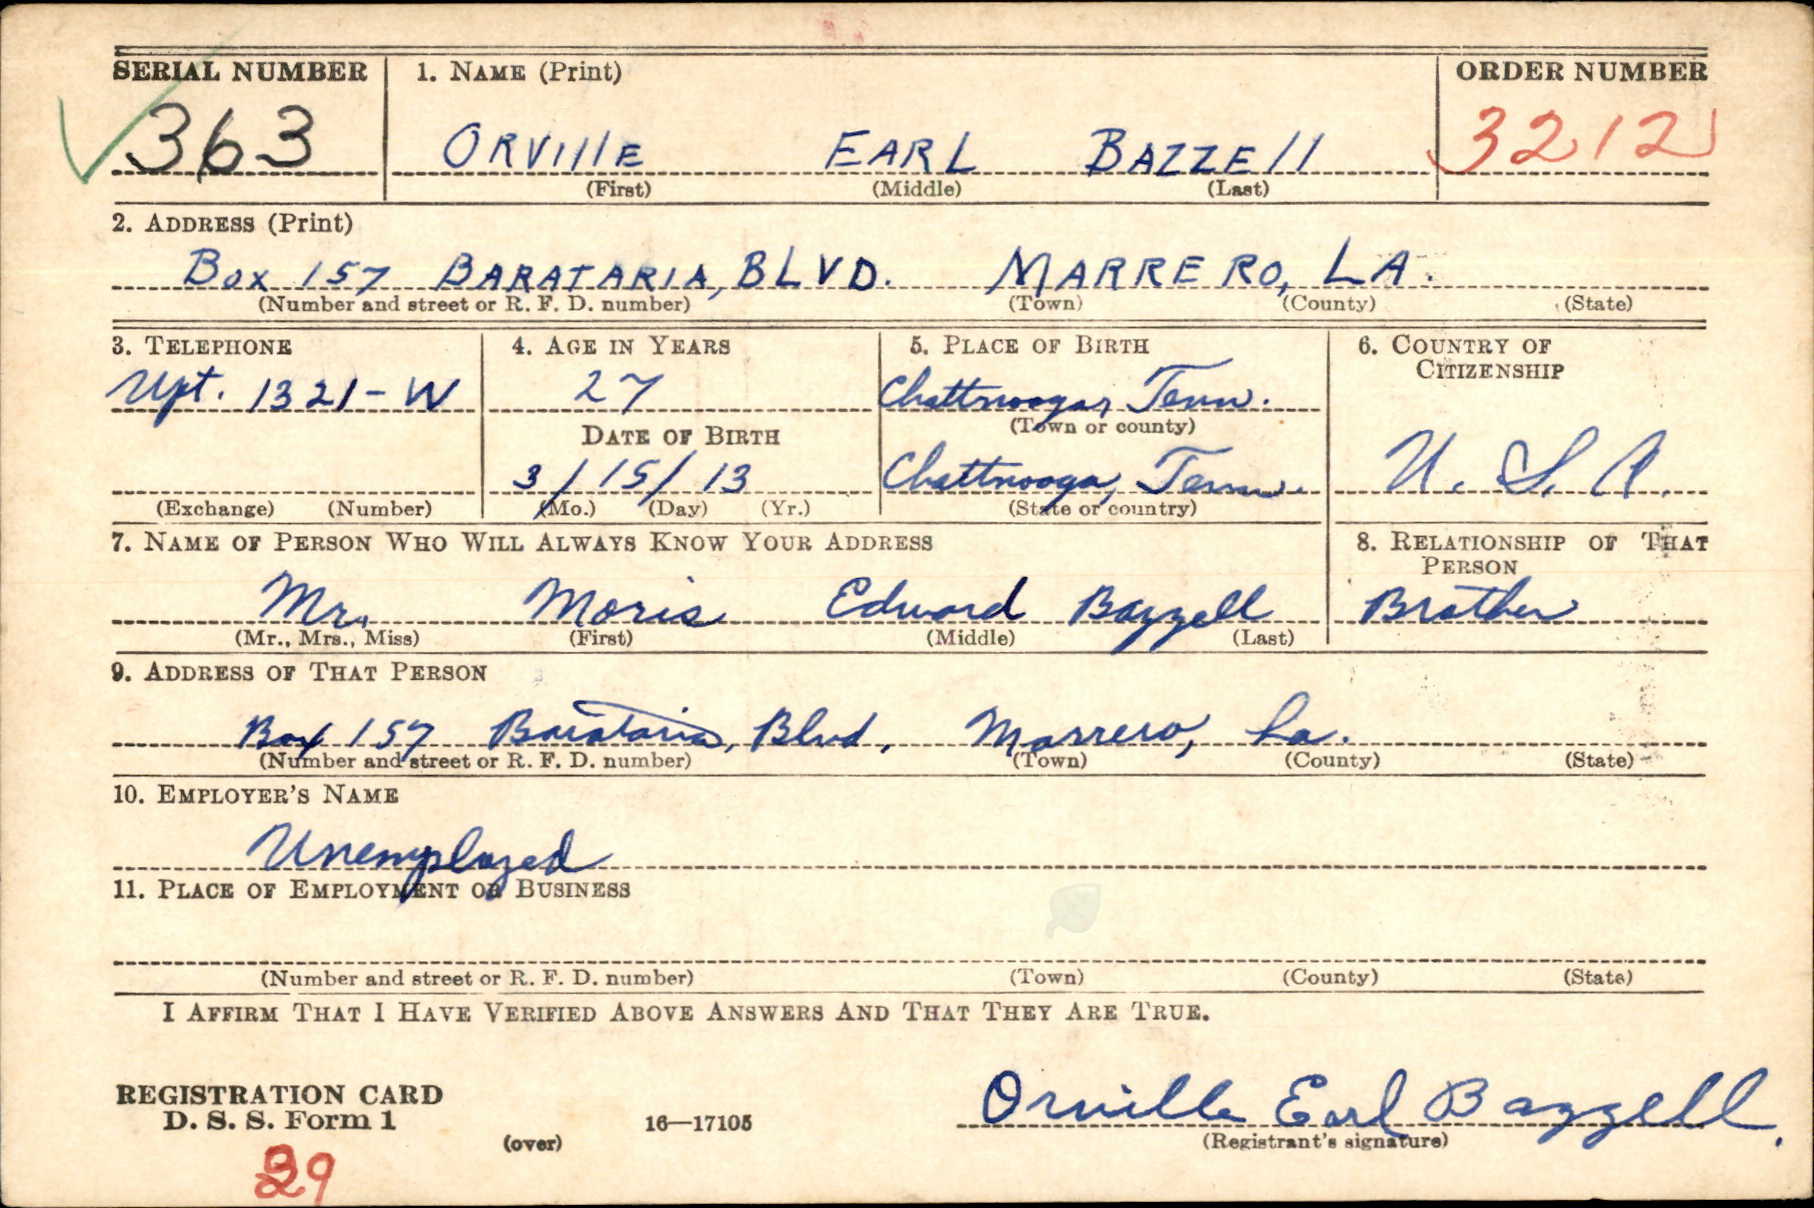 SERIAL NUMBER 1. NAME (Print) ORDER NUMBER
363 ORVIllE EARL BAZZEll 3212
(First) (Middle) (Last)
2. ADDRESS (Print)
Box 157 BARATARIA, BLVD. MARRERO, LA.
(Number and street or R. F. D. number) (Town) (County) (State)
3. TELEPHONE 4. AGE IN YEARS 5. PLACE OF BIRTH 6. COUNTRY OF
CITIZENSHIP
Upt. 1321-W 27 Chattnooga, Tenn.
(Town or county)
DATE OF BIRTH
3/15/13 Chattnooga, Tenn. U. S. A.
(Exchange) (Number) (Mo.) (Day) (Yr.) (State or country)
7. NAME OF PERSON WHO WILL ALWAYS KNOW YOUR ADDRESS 8. RELATIONSHIP OF THAT
PERSON
Mr. Moris Edward Bazzell Brother
(Mr., Mrs., Miss) (First) (Middle) (Last)
9. ADDRESS OF THAT PERSON
Box 157 Barataria, Blvd, Marrero, La.
(Number and street or R. F. D. number) (Town) (County) (State)
10. EMPLOYER'S NAME
Unemployed
11. PLACE OF EMPLOYMENT OR BUSINESS
(Number and street or R. F. D. number) (Town) (County) (State)
I AFFIRM THAT I HAVE VERIFIED ABOVE ANSWERS AND THAT THEY ARE TRUE.
REGISTRATION CARD
D. S. S. Form 1 16—17105 Orville Earl Bazzell.
(over) (Registrant's signature)